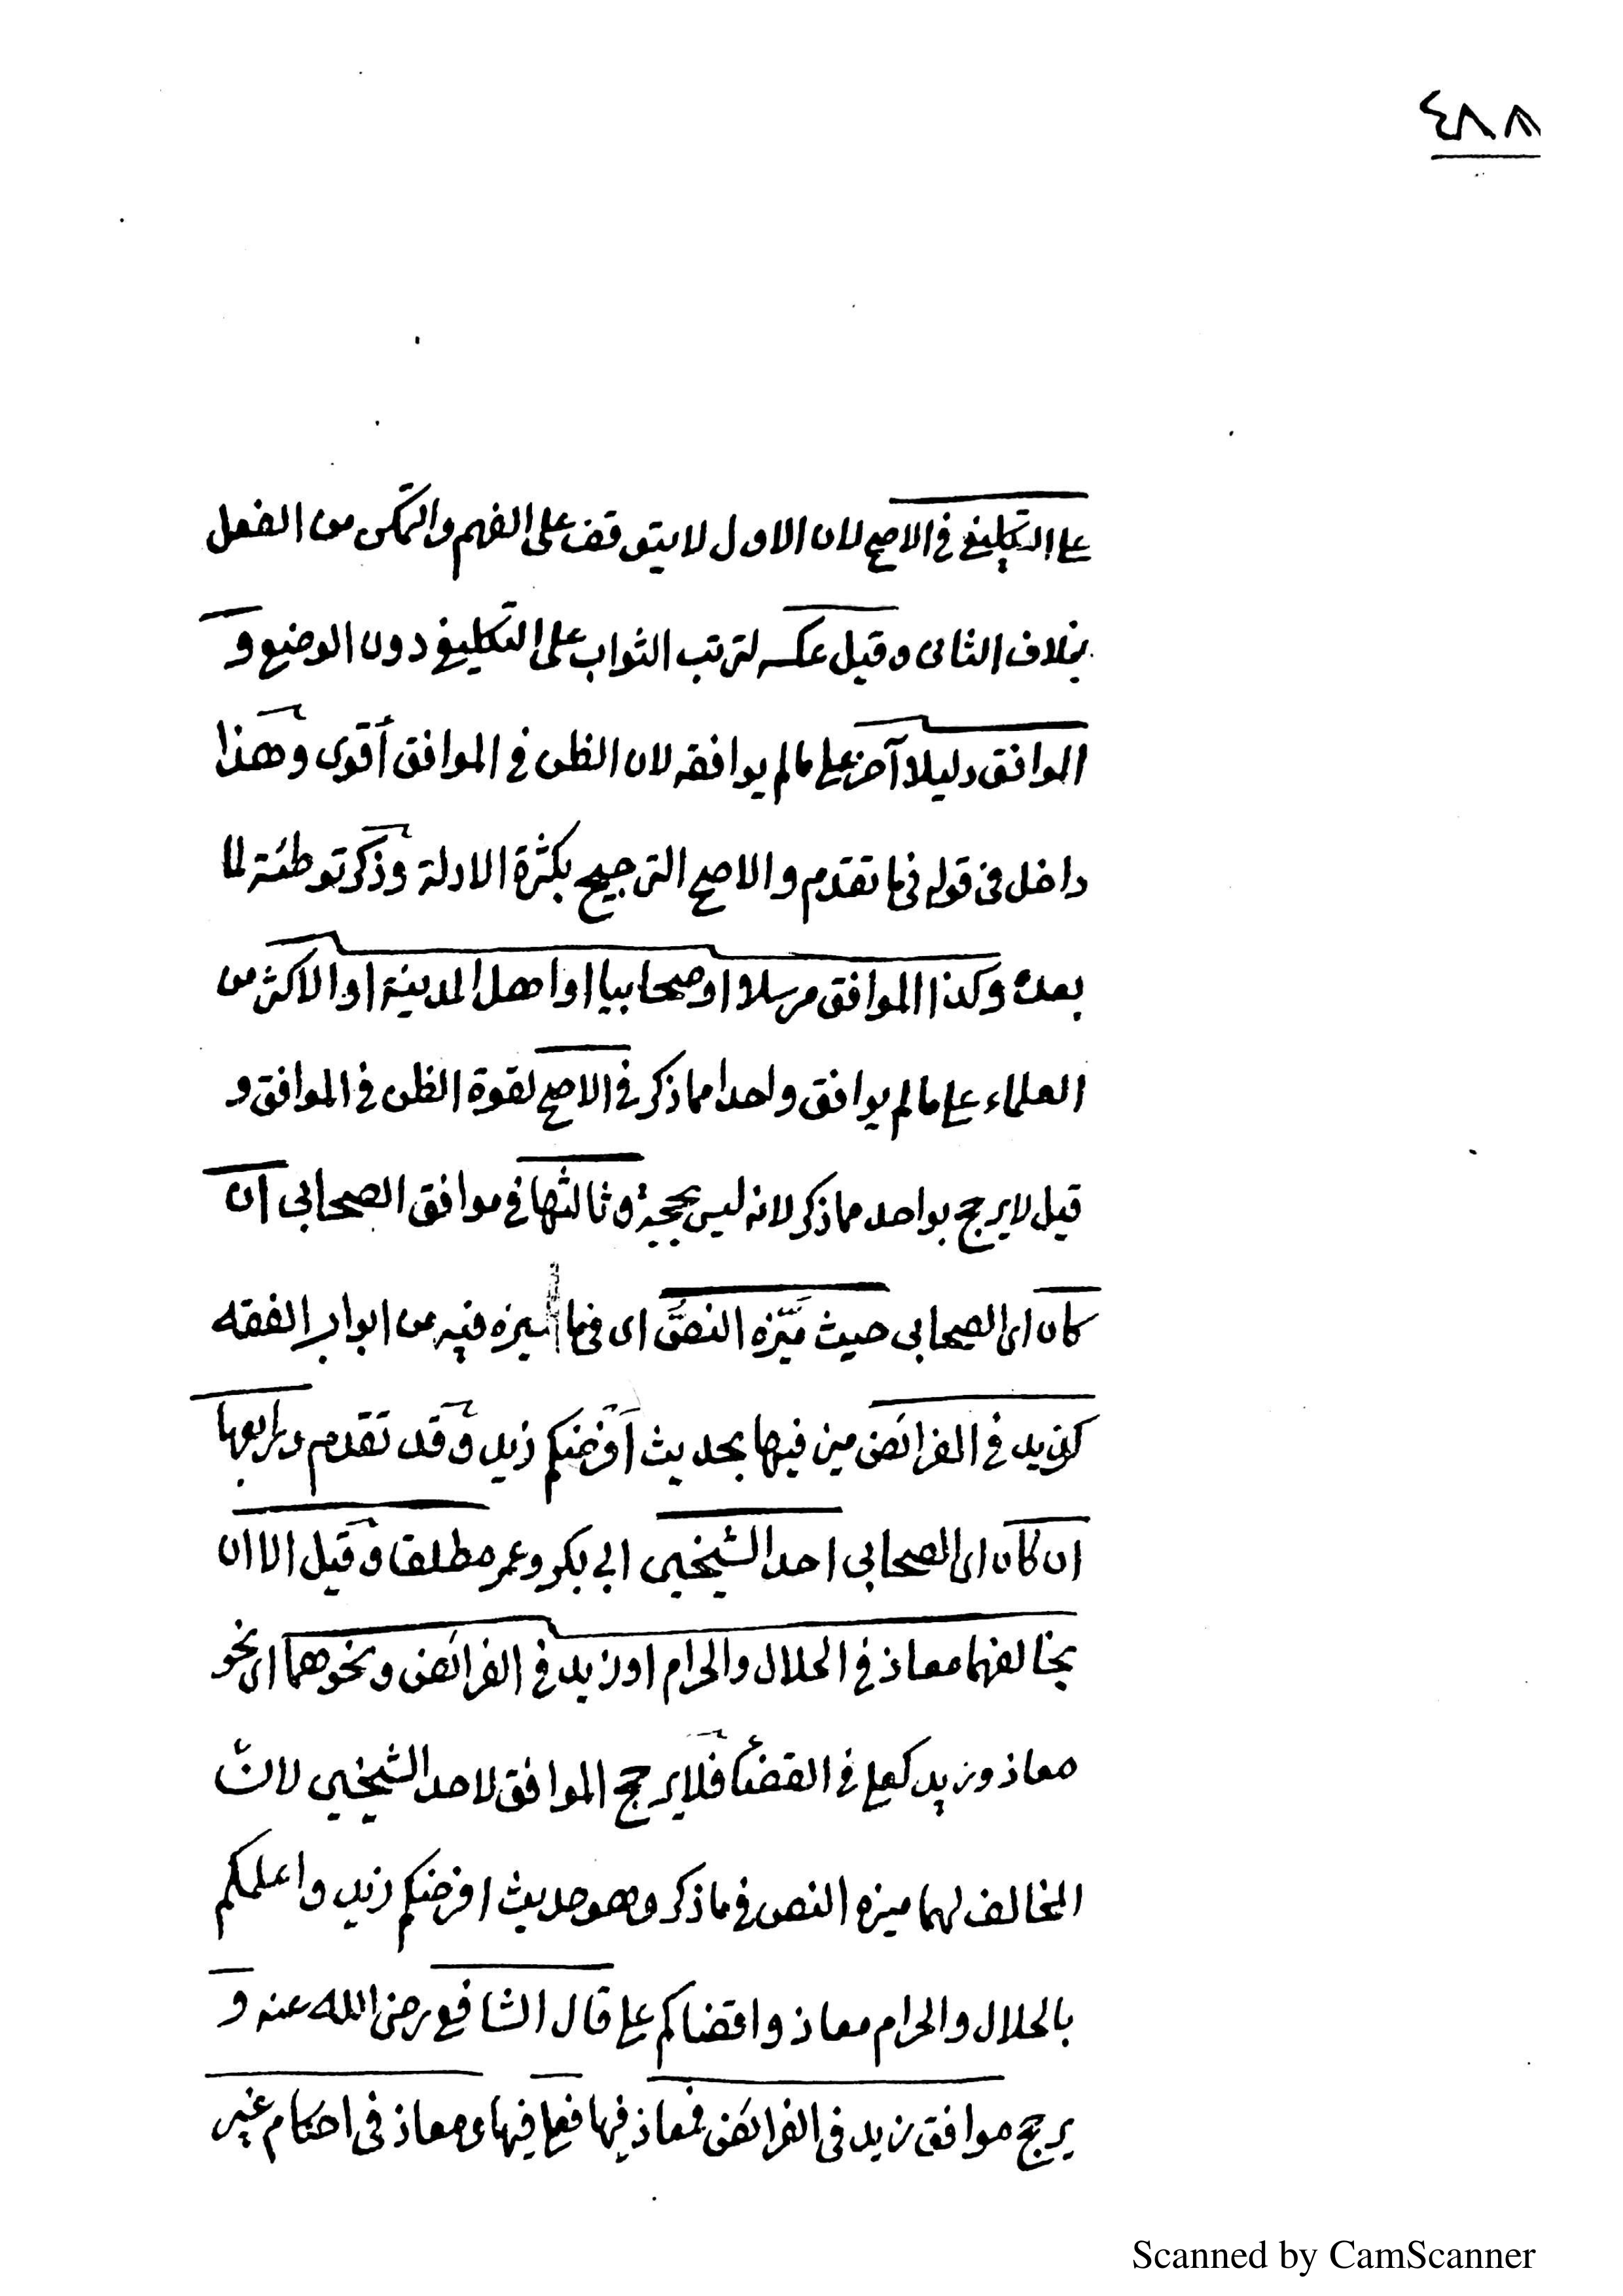 ٤٨٨
على التكليفي في الاصح لان الاول لا يتوقف على الفهم والتمكن من الفعل
بخلاف الثاني وقيل عكسه لترتب الثواب على التكليفي دون الوضعي و
الموافق دليلا آخر على ما لم يوافقه لان الظن في الموافق أقوى وهذا
داخل في قوله فيما تقدم والاصح الترجيح بكثرة الادلة وذكر توطئة لما
بعده وكذا الموافق مرسلا او صحابيا او اهل المدينة او الاكثر من
العلماء على ما لم يوافق واحدا مما ذكر في الاصح لقوة الظن في الموافق و
قيل لا يرجح بواحد مما ذكر لانه ليس بحجة وثالثها في موافق الصحابي ان
كان اى الصحابي حيث ميّزه النصّ اى فيما ميزه فيه من ابواب الفقه
كزيد في الفرائض ميز فيها بحديث أفرضكم زيد وقد تقدم ورابعها
ان كان اى الصحابي احد الشيخين ابي بكر وعمر مطلقا وقيل الا ان
يخالفهما معاذ في الحلال والحرام او زيد في الفرائض ونحوهما اى نحو
معاذ وزيد كعلي في القضاء فلا يرجح الموافق لاحد الشيخين لانّ
المخالف لهما ميزه النص فيما ذكر وهو حديث افرضكم زيد واعلمكم
بالحلال والحرام معاذ واقضاكم علي قال الشافعي رضى الله عنه و
يرجح موافق زيد في الفرائض فمعاذ فيها فعلي فيها ومعاذ في احكام غير
Scanned by CamScanner